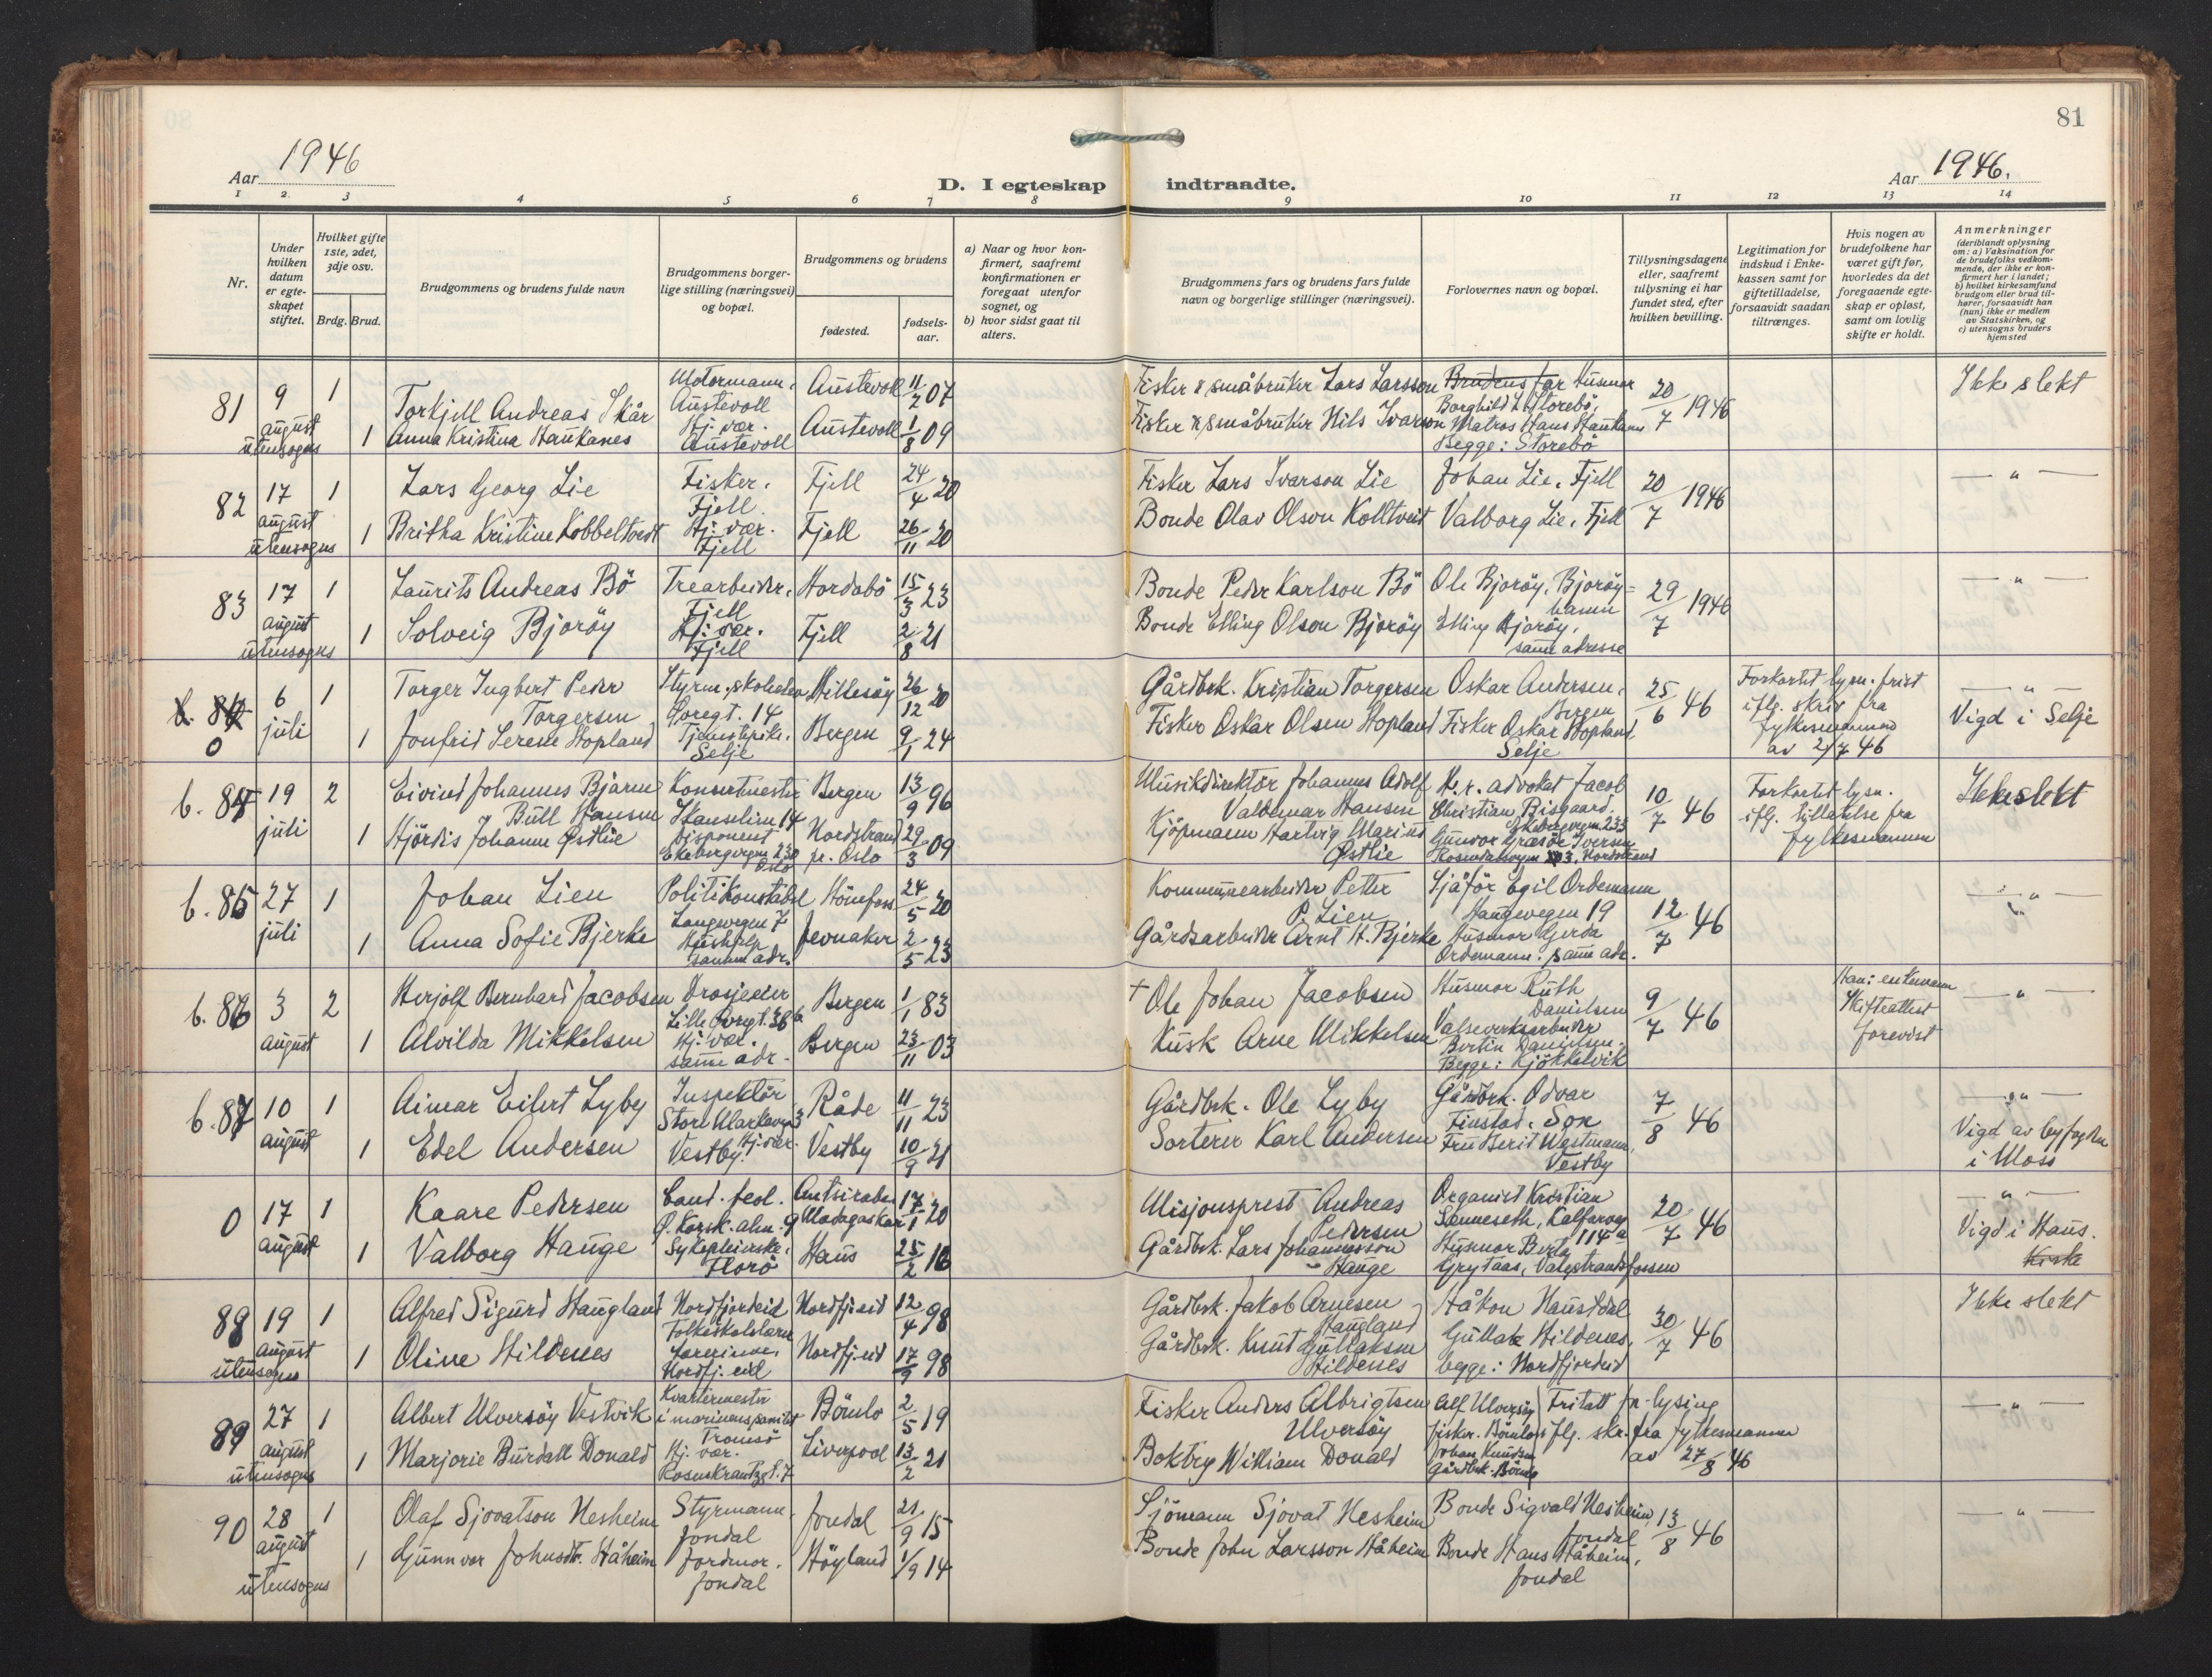 81
Aar 1946
D. I egteskap indtraadte.
Aar 1946.
1 2. 3 4 5 6 7 8 9 10 11 12 13 14
Nr.
Under hvilken datum er egte-skapet stiftet.
Hvilket gifte 1ste, 2det, 3dje osv.
Brdg. Brud.
Brudgommens og brudens fulde navn
Brudgommens borger-lige stilling (næringsvei) og bopæl.
Brudgommens og brudens
fødested.
fødsels-aar.
a) Naar og hvor kon-firmert, saafremt konfirmationen er foregaat utenfor sognet, og
b) hvor sidst gaat til alters.
Brudgommens fars og brudens fars fulde navn og borgerlige stillinger (næringsvei).
Forlovernes navn og bopæl.
Tillysningsdagene eller, saafremt tillysning ei har fundet sted, efter hvilken bevilling.
Legitimation for indskud i Enke-kassen samt for giftetilladelse, forsaavidt saadan tiltrænges.
Hvis nogen av brudefolkene har været gift før, hvorledes da det foregaaende egte-skap er opløst, samt om lovlig skifte er holdt.
Anmerkninger
(deriblandt oplysning om: a) Vaksination for de brudefolks vedkom-mende, der ikke er kon-firmert her i landet; b) hvilket kirkesamfund brudgom eller brud til-hører, forsaavidt han (hun) ikke er medlem av Statskirken, og c) utensogns bruders hjemsted
81 9 august utensogns 1 Torkjell Andreas Skår Motormann, Austevoll Austevoll 11/2 07 Fisker & småbruker Lars Larsson Brudens far Husmor Borghild L. Storebö, 20/7 1946 Ikke slekt
1 Anna Kristina Haukanes Hj. vær. Austevoll Austevoll 1/8 09 Fisker & småbruker Nils Ivarson Matros Hans Haukanes Begge: Storebö
82 17 august utensogns 1 Lars Georg Lie Fisker. Fjell. Fjell 24/4 20 Fisker Lars Ivarson Lie Johan Lie, Fjell 20/7 1946 — " —
1 Britha Kristine Kobbeltvedt Hj. vær. Fjell Fjell 26/11 20 Bonde Olav Olson Kolltveit Valborg Lie, Fjell
83 17 august utensogns 1 Laurits Andreas Bö Trearbeider, Fjell Hordabö 15/3 23 Bonde Peder Karlson Bö Ole Bjoröy, Bjoröyhamn 29/7 1946 — " —
1 Solveig Bjoröy Hj. vær. Fjell Fjell 2/8 21 Bonde Elling Olson Bjoröy Elling Bjoröy, samme adresse
0 6 juli 1 Torger Ingbert Peder Torgersen Styrm.skoleelev Millesöy 26/12 20 Gårdbrk. Kristian Torgersen Oskar Andersen, Bergen 25/6 46 Forkortet lysn. frist iflg. skriv fra fylkesmannen av 2/7 46 — " — Vigd i Selje
1 Jonfrid Serene Hopland Tjenestepike. Selje Bergen 9/1 24 Fisker Oskar Olsen Hopland Fisker Oskar Hopland, Selje
b. 84 19 juli 2 Eivind Johannes Bjarne Büll Hansen Konsertmester Bergen 13/9 96 Musikdirektör Johannes Adolf Valdemar Hansen H.r. advokat Jacob Christian Bisgaard. Ekebergvegen 235 10/7 46 Forkortet lysn. iflg. tillatelse fra fylkesmannen Ikke slekt
1 Hjördis Johanne Østlie disponent Ekebergvegen 230 Oslo Nordstrand pr. Oslo 29/3 09 Kjöpmann Hartvig Marius Østlie Gunvor Græsöe Iversen Nordstrand
b. 85 27 juli 1 Johan Lien Politikonstabel Langvegen 7 Hönefoss 24/5 20 Kommunearbeider Petter P. Lien Sjåför Egil Ordemann Haugvegen 19 12/7 46 — " —
1 Anna Sofie Bjerke Hushjelp samme adr. Jevnaker 2/5 23 Gårdsarbeider Arnt H. Bjerke Husmor Gjerda Ordemann: samme adr.
b. 86 3 august 2 Herjolf Bernhard Jacobsen Drosjeeier Bergen 1/1 83 + Ole Johan Jacobsen Husmor Ruth Danielsen 9/7 46 Han: enkemann Skifteattest forevist — " —
1 Alvilda Mikkelsen Hj. vær. samme adr. Bergen 23/11 03 Kusk Arne Mikkelsen Valseverksarbeider Bertin Danielsen. Begge: Kjökkelvik
b. 87 10 august 1 Aimar Eilert Lyby Inspektör Råde 11/11 23 Gårdbrk. Ole Lyby Gårdbrk. Odvar Finstad, Son 7/8 46 — " — Vigd av byfogden i Moss
1 Edel Andersen Hj. vær. Vestby. Vestby 10/9 21 Sorterer Karl Andersen Fru Berit Westmann, Vestby
0 17 august 1 Kaare Pedersen Cand. teol. Antsirabe Madagaskar 17/1 20 Misjonsprest Andreas Pedersen Organist Kristian Senneseth, Kalfarvegen 114a 20/7 46 — " — Vigd i Haus. Kirke
1 Valborg Hauge Sykepleierske, Florö Haus 25/2 16 Gårdbrk. Lars Johannesson Hauge Husmor Berta Grytaas, Valestrandsfossen
88 19 august utensogns 1 Alfred Sigurd Haugland Nordfjordeid Folkeskolelærer Nordfj.eid 12/4 98 Gårdbrk. Jakob Arnesen Haugland Håkon Haustdal 30/7 46 Ikke slekt
1 Oline Hildenes Lærerinne, Nordfj.eid Nordfj.eid 17/9 98 Gårdbrk. Knut Gullaksen Hildenes Gullak Hildenes, begge: Nordfjordeid
89 27 august utensogns 1 Albert Ulversöy Vestvik Kvartermester i marinens sanitet Tromsö Bömlo 2/5 19 Fisker Anders Albrigtsen Ulversöy Alf Ulversöy fisker. Bömlo Fritatt for lysing iflg. skr. fra fylkesmannen av 27/8 46 — " —
1 Marjorie Burdall Donald Hj. vær. Rosenkrantzgt. 7 Liverpool 13/2 21 Boktry William Donald Johan Knudsen Gårdbrk. Bömlo
90 28 august utensogns 1 Olaf Sjovatson Nesheim Styrmann, Jondal Jondal 21/9 15 Sjömann Sjovat Nesheim Bonde Sigvald Nesheim, Jondal 13/8 46 — " —
1 Gunnvor Johnsdtr. Håheim Jordmor, Jondal Höyland 1/9 14 Bonde John Larsson Håheim Bonde Hans Håheim, Jondal